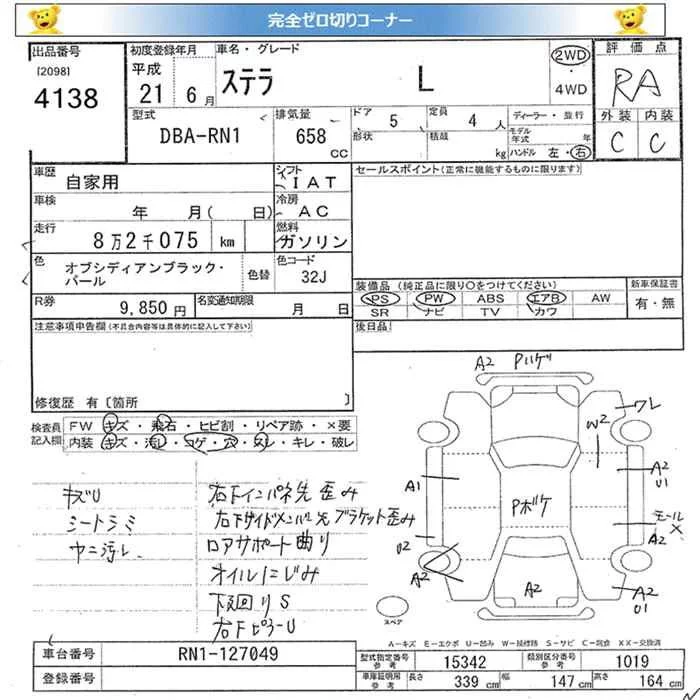 完全ゼロ切りコーナー
出品番号
[2098]
4138
初度登録年月
平成
21 6月
車名・グレード
ステラ L
2WD
・
4WD
評価点
RA
外装 内装
C C
型式
DBA-RN1
排気量
658
CC
ドア 5
定員 4 人
形状
積載 kg
ディーラー・並行
モデル年式 年
ハンドル 左・右
車歴
自家用
シフト
IAT
車検
年 月( 日)
冷房
AC
走行
8万2千075 km
燃料
ガソリン
色
オブシディアンブラック・パール
色替
色コード
32J
R券
9,850円
名変通知期限
月 日
セールスポイント(正常に機能するものに限ります)
装備品 (純正品に限り○をつけてください)
PS PW ABS エアB AW
SR ナビ TV カワ
新車保証書
有・無
後日品
注意事項申告欄(不具合内容等は具体的に記入して下さい)
修復歴 有〔箇所 〕
検査員記入欄
FW キズ・飛石・ヒビ割・リペア跡・×要
内装 キズ・汚れ・コゲ・穴・スレ・キレ・破レ
キズU
シートシミ
ヤニ汚レ
右下インパネ先歪み
右下サイドメンバー先ブラケット歪み
ロアサポート曲り
オイルにじみ
下回りS
右下ピラーU
A2 Pハゲ
ワレ
W2
A1
A2
U1
Pボケ
モール
×
A2
U2
A2
A2
A2
U1
スペア
A-キズ E-エクボ U-凹み W-補修跡 S-サビ C-腐食 XX-交換済
車台番号
RN1-127049
登録番号
型式指定番号
参考
15342
類別区分番号
参考
1019
車庫証明用
参考
長さ 339 cm
幅 147 cm
高さ 164 cm